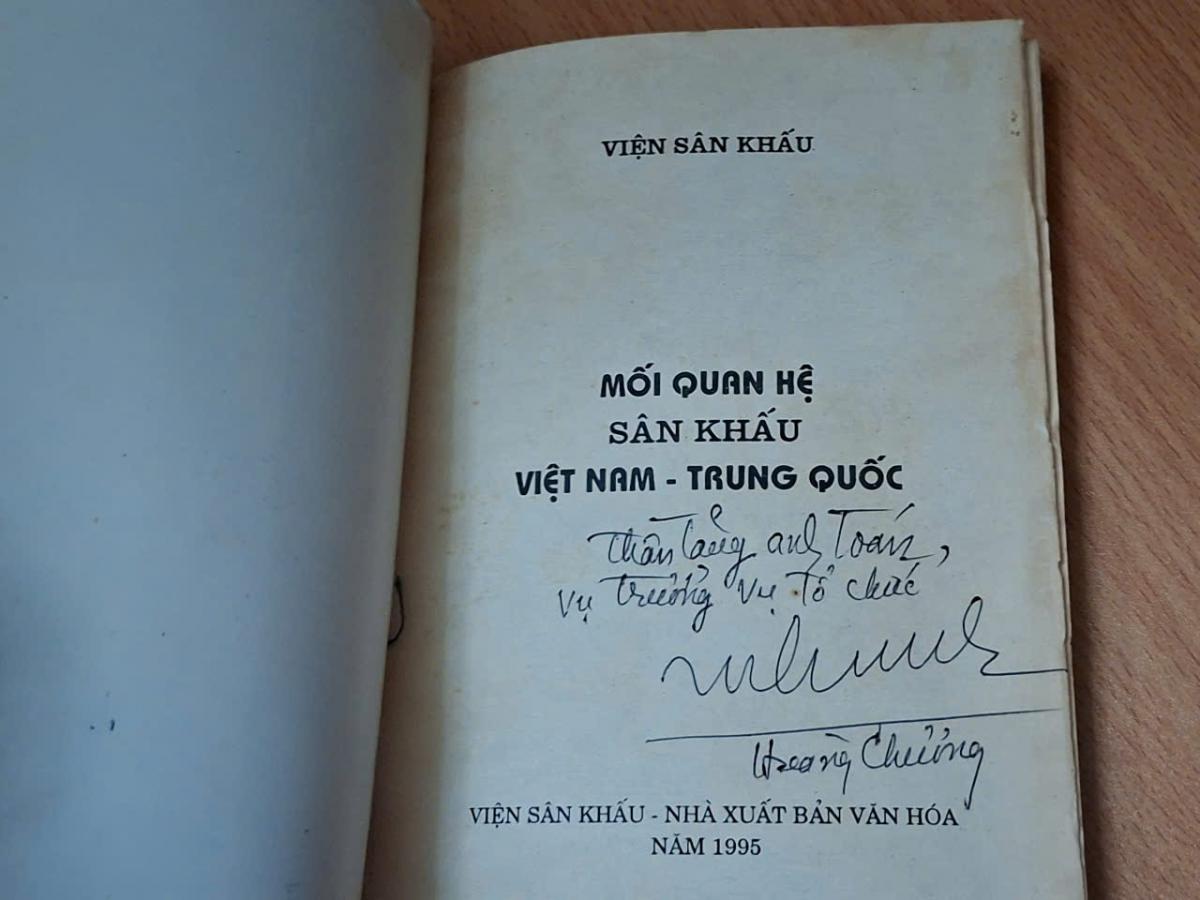 VIỆN SÂN KHẤU
MỐI QUAN HỆ
SÂN KHẤU
VIỆT NAM - TRUNG QUỐC
Thân tặng anh Toán,
Vụ trưởng Vụ Tổ chức
Hoàng Chương
VIỆN SÂN KHẤU - NHÀ XUẤT BẢN VĂN HÓA
NĂM 1995